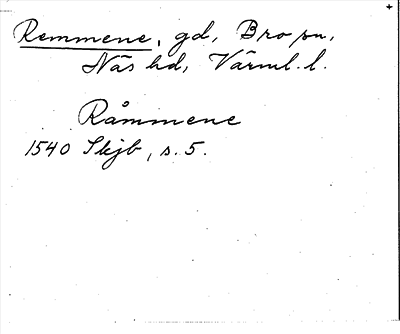 Remmene, gd, Bro sn,
Näs hd, Värml. l.
Råmmene
1540 Skjb, s. 5.